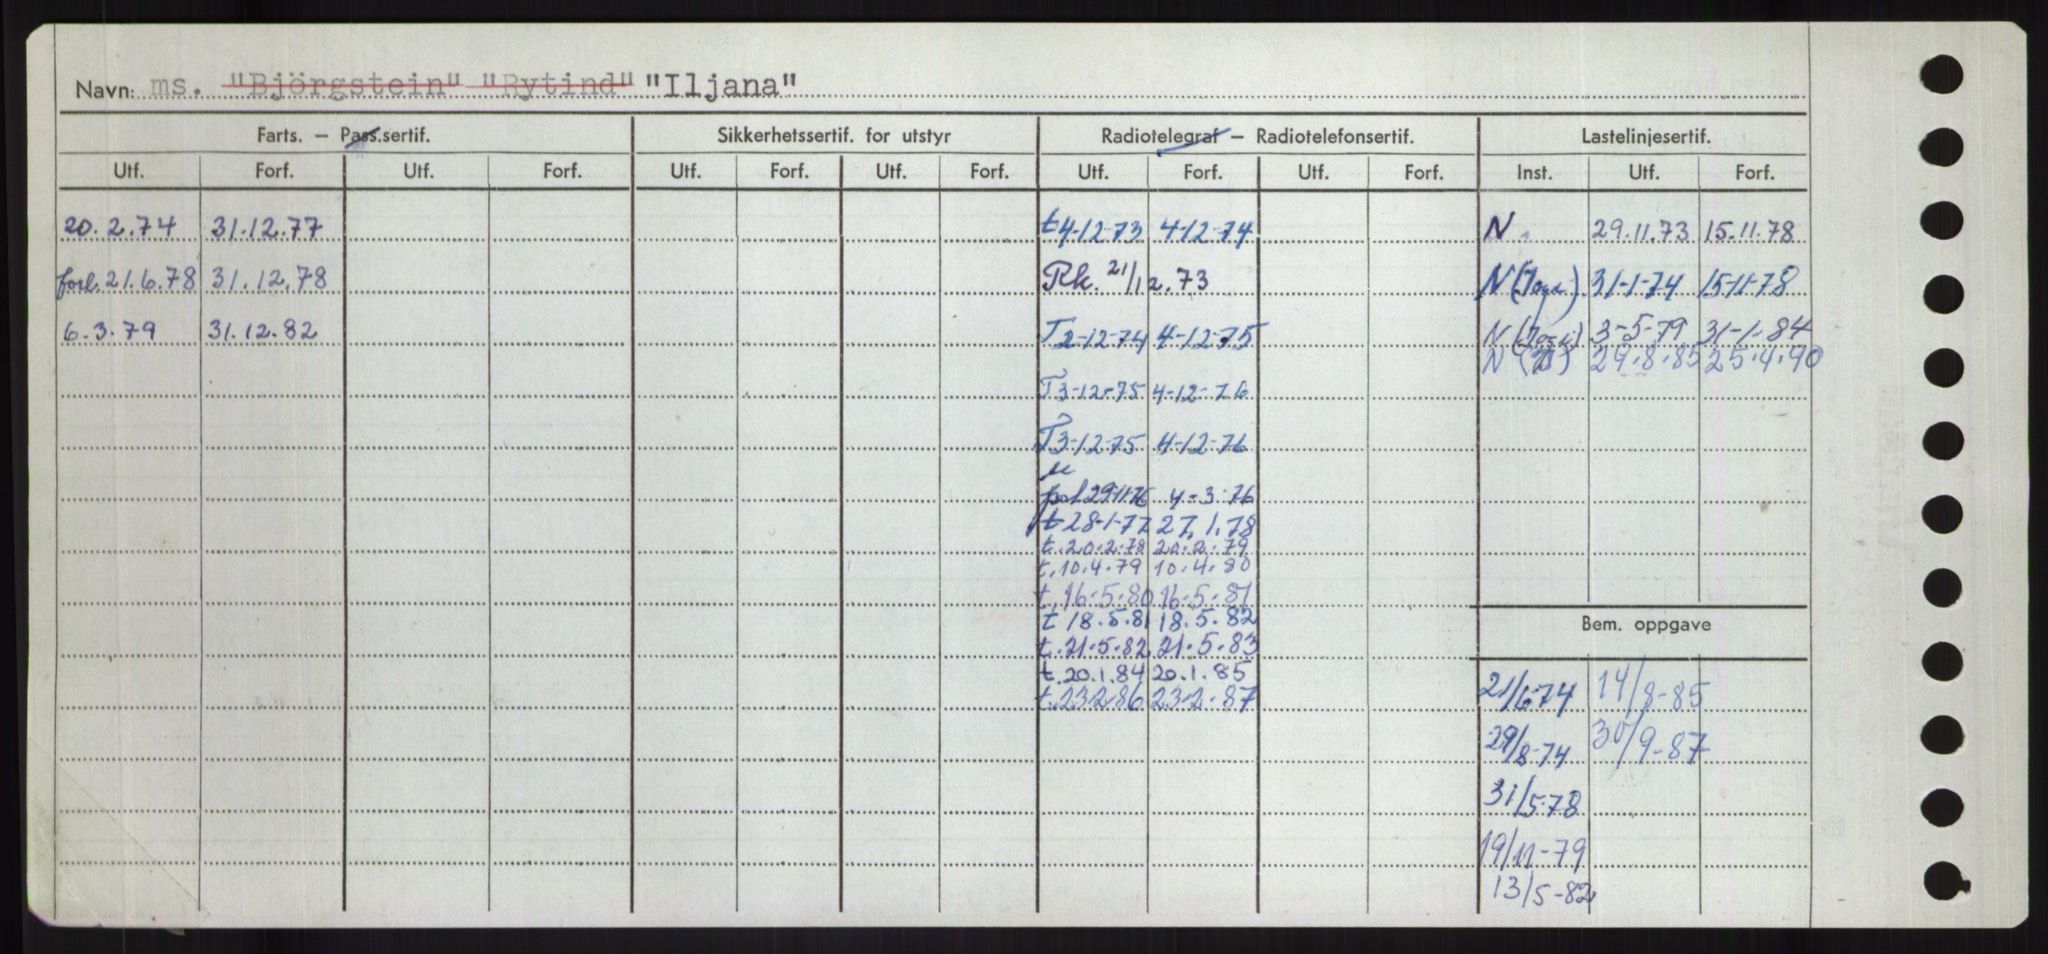 Navn: ms. "Björgstein" "Rytind" "Iljana"
Farts. — Pass.sertif. Sikkerhetssertif. for utstyr Radiotelegraf — Radiotelefonsertif. Lastelinjesertif.
Utf. Forf. Utf. Forf. Utf. Forf. Utf. Forf. Utf. Forf. Utf. Forf. Inst. Utf. Forf.
20.2.74 31.12.77 t 4-12-73 4-12-74 N. 29.11.73 15.11.78
forl. 21.6.78 31.12.78 Rk. 21/12.73 N 31-1-74 15-11-78
6.3.79 31.12.82 T 2-12-74 4-12-75 N 3-5-79 31-1.84
N 29.8.85 25.4.90
T 3-12-75 4-12-76
T 3-12-75 4-12-76
29-11-76 4-3-76
t 28-1-77 27.1.78
t. 20.2.78 20.2.79
t. 10.4.79 10.4.80
t. 16.5.80 16.5.81
t 18.5.81 18.5.82
Bem. oppgave
t. 21.5.82 21.5.83
t. 20.1.84 20.1.85
t. 23.2.86 23.2.87
21/6.74 14/8-85
29/8-74 30/9-87
31/5-78
19/11-79
13/5-82